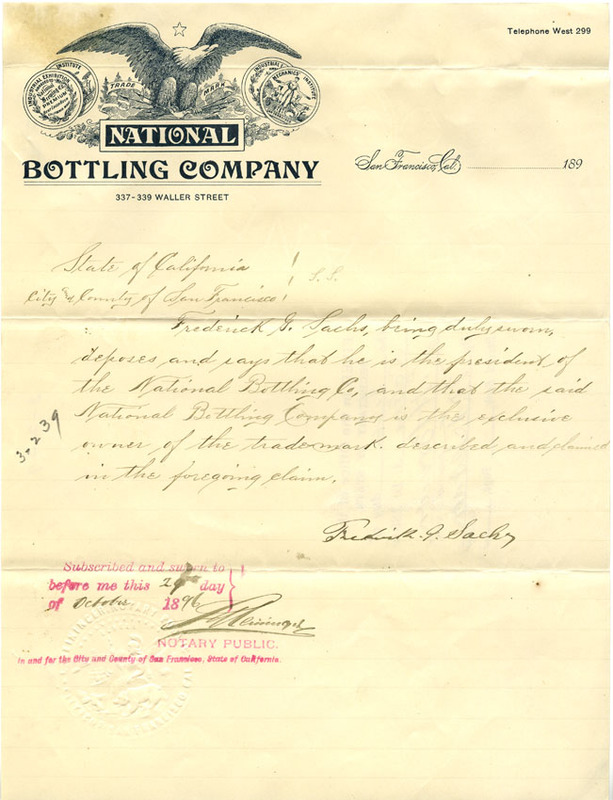 Telephone West 299
INDUSTRIAL EXHIBITION
INSTITUTE
TRADE MARK
MECHANICS INSTITUTE
NATIONAL
BOTTLING COMPANY
337-339 WALLER STREET
San Francisco, Cal. 189
State of California
City & County of San Francisco } S.S.
Frederick G. Sachs, being duly sworn,
deposes and says that he is the president of
the National Bottling Co, and that the said
National Bottling Company is the exclusive
owner of the trade mark described and claimed
in the foregoing claim.
3-239
Fredrick. G. Sachs
Subscribed and sworn to
before me this 29 day
of October 1896
NOTARY PUBLIC.
In and for the City and County of San Francisco, State of California.